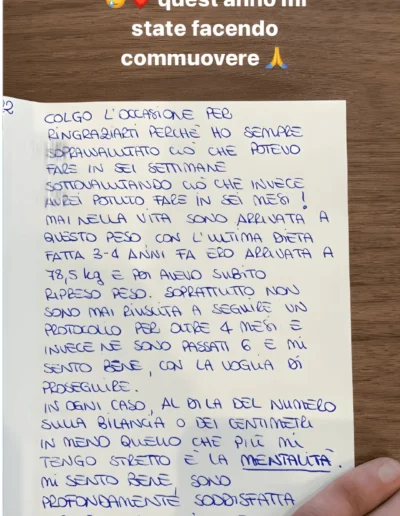 😢❤️ quest'anno mi
state facendo
commuovere 🙏
2
COLGO L'OCCASIONE PER
RINGRAZIARTI PERCHÈ HO SEMPRE
SOPRAVVALUTATO CIÒ CHE POTEVO
FARE IN SEI SETTIMANE
SOTTOVALUTANDO CIÒ CHE INVECE
AVREI POTUTO FARE IN SEI MESI!
MAI NELLA VITA SONO ARRIVATA A
QUESTO PESO CON L'ULTIMA DIETA
FATTA 3-4 ANNI FA ERO ARRIVATA A
78,5 kg E POI AVEVO SUBITO
RIPRESO PESO. SOPRATTUTTO NON
SONO MAI RIUSCITA A SEGUIRE UN
PROTOCOLLO PER OLTRE 4 MESI E
INVECE NE SONO PASSATI 6 E MI
SENTO BENE, CON LA VOGLIA DI
PROSEGUIRE.
IN OGNI CASO, AL DI LÀ DEL NUMERO
SULLA BILANCIA O DEI CENTIMETRI
IN MENO QUELLO CHE PIÙ MI
TENGO STRETTO È LA MENTALITÀ.
MI SENTO BENE, SONO
PROFONDAMENTE SODDISFATTA